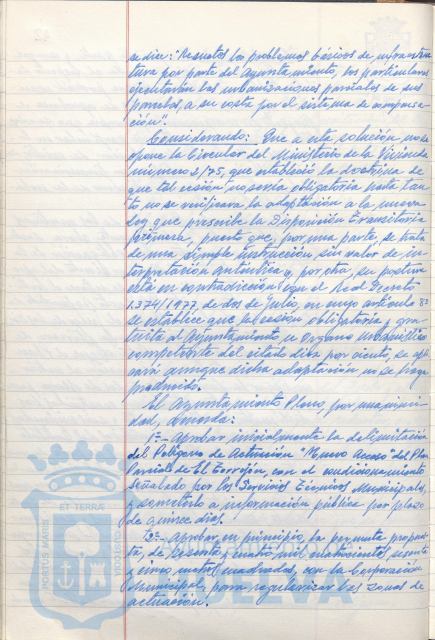 se dice: "Resueltos los problemas básicos de infraestruc
tura por parte del Ayuntamiento, los particulares
ejecutarán las urbanizaciones parciales de sus
parcelas, a su costa por el sistema de compensa
ción".
Considerando: Que a esta solución no se
opone la Circular del Ministerio de la Vivienda
número 2/75, que estableció la doctrina de
que tal cesión no sería obligatoria hasta tan
to no se verificara la adaptación a la nueva
Ley que prescribe la Disposición Transitoria
Primera, puesto que, por una parte, se trata
de una simple instrucción, sin valor de in
terpretación auténtica y, por otra, su postura
está en contradicción con el Real Decreto
1.374/1977, de dos de Julio, en cuyo artículo 8º
se establece que la cesión obligatoria y gra
tuita al Ayuntamiento u Organo Urbanístico
competente del citado diez por ciento, se apli
cará aunque dicha adaptación no se haya
producido.
El Ayuntamiento Pleno, por unanimi
dad, acuerda:
1º.- Aprobar inicialmente la delimitación
del Polígono de Actuación "Nuevo Acceso" del Plan
Parcial de El Torrejón, con el condicionamiento
señalado por los Servicios Técnicos Municipales,
y someterlo a información pública por plazo
de quince días.
2º.- Aprobar, en principio, la permuta propues
ta, de sesenta y cuatro mil cuatrocientos sesenta
y cinco metros cuadrados, con la Corporación
Municipal, para regularizar las zonas de
actuación.
PORTUS MARIS
ET TERRÆ
CUSTODIA
HUELVA